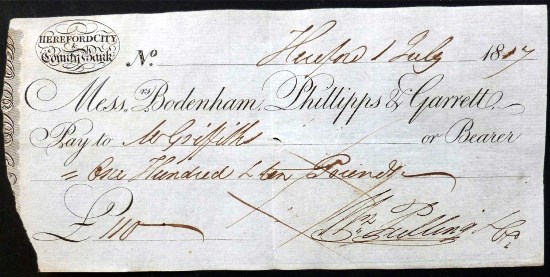 HEREFORD CITY
&
County Bank
No. Hereford 1 July 1817
Mess.rs Bodenham, Phillipps & Garrett
Pay to Mr Griffiths or Bearer
One Hundred & ten Pounds
£110
Wm Pulling & Co